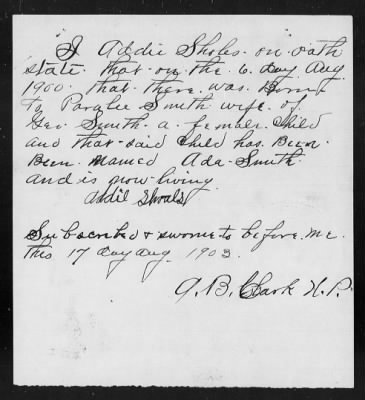 "I Addie Sholes. on. oath
state. that. on. the. 6. day. Aug.
1900. that. there. was. Born
To Paralie Smith wife. of.
Geo. Smith. a. female. Child
and that said Child has. Been.
Been. named Ada. Smith.
and is now living.
Addie Shoals
Subscribed & sworne to before. me.
this 17 day Aug. 1903.
A. B. Clark N. P.